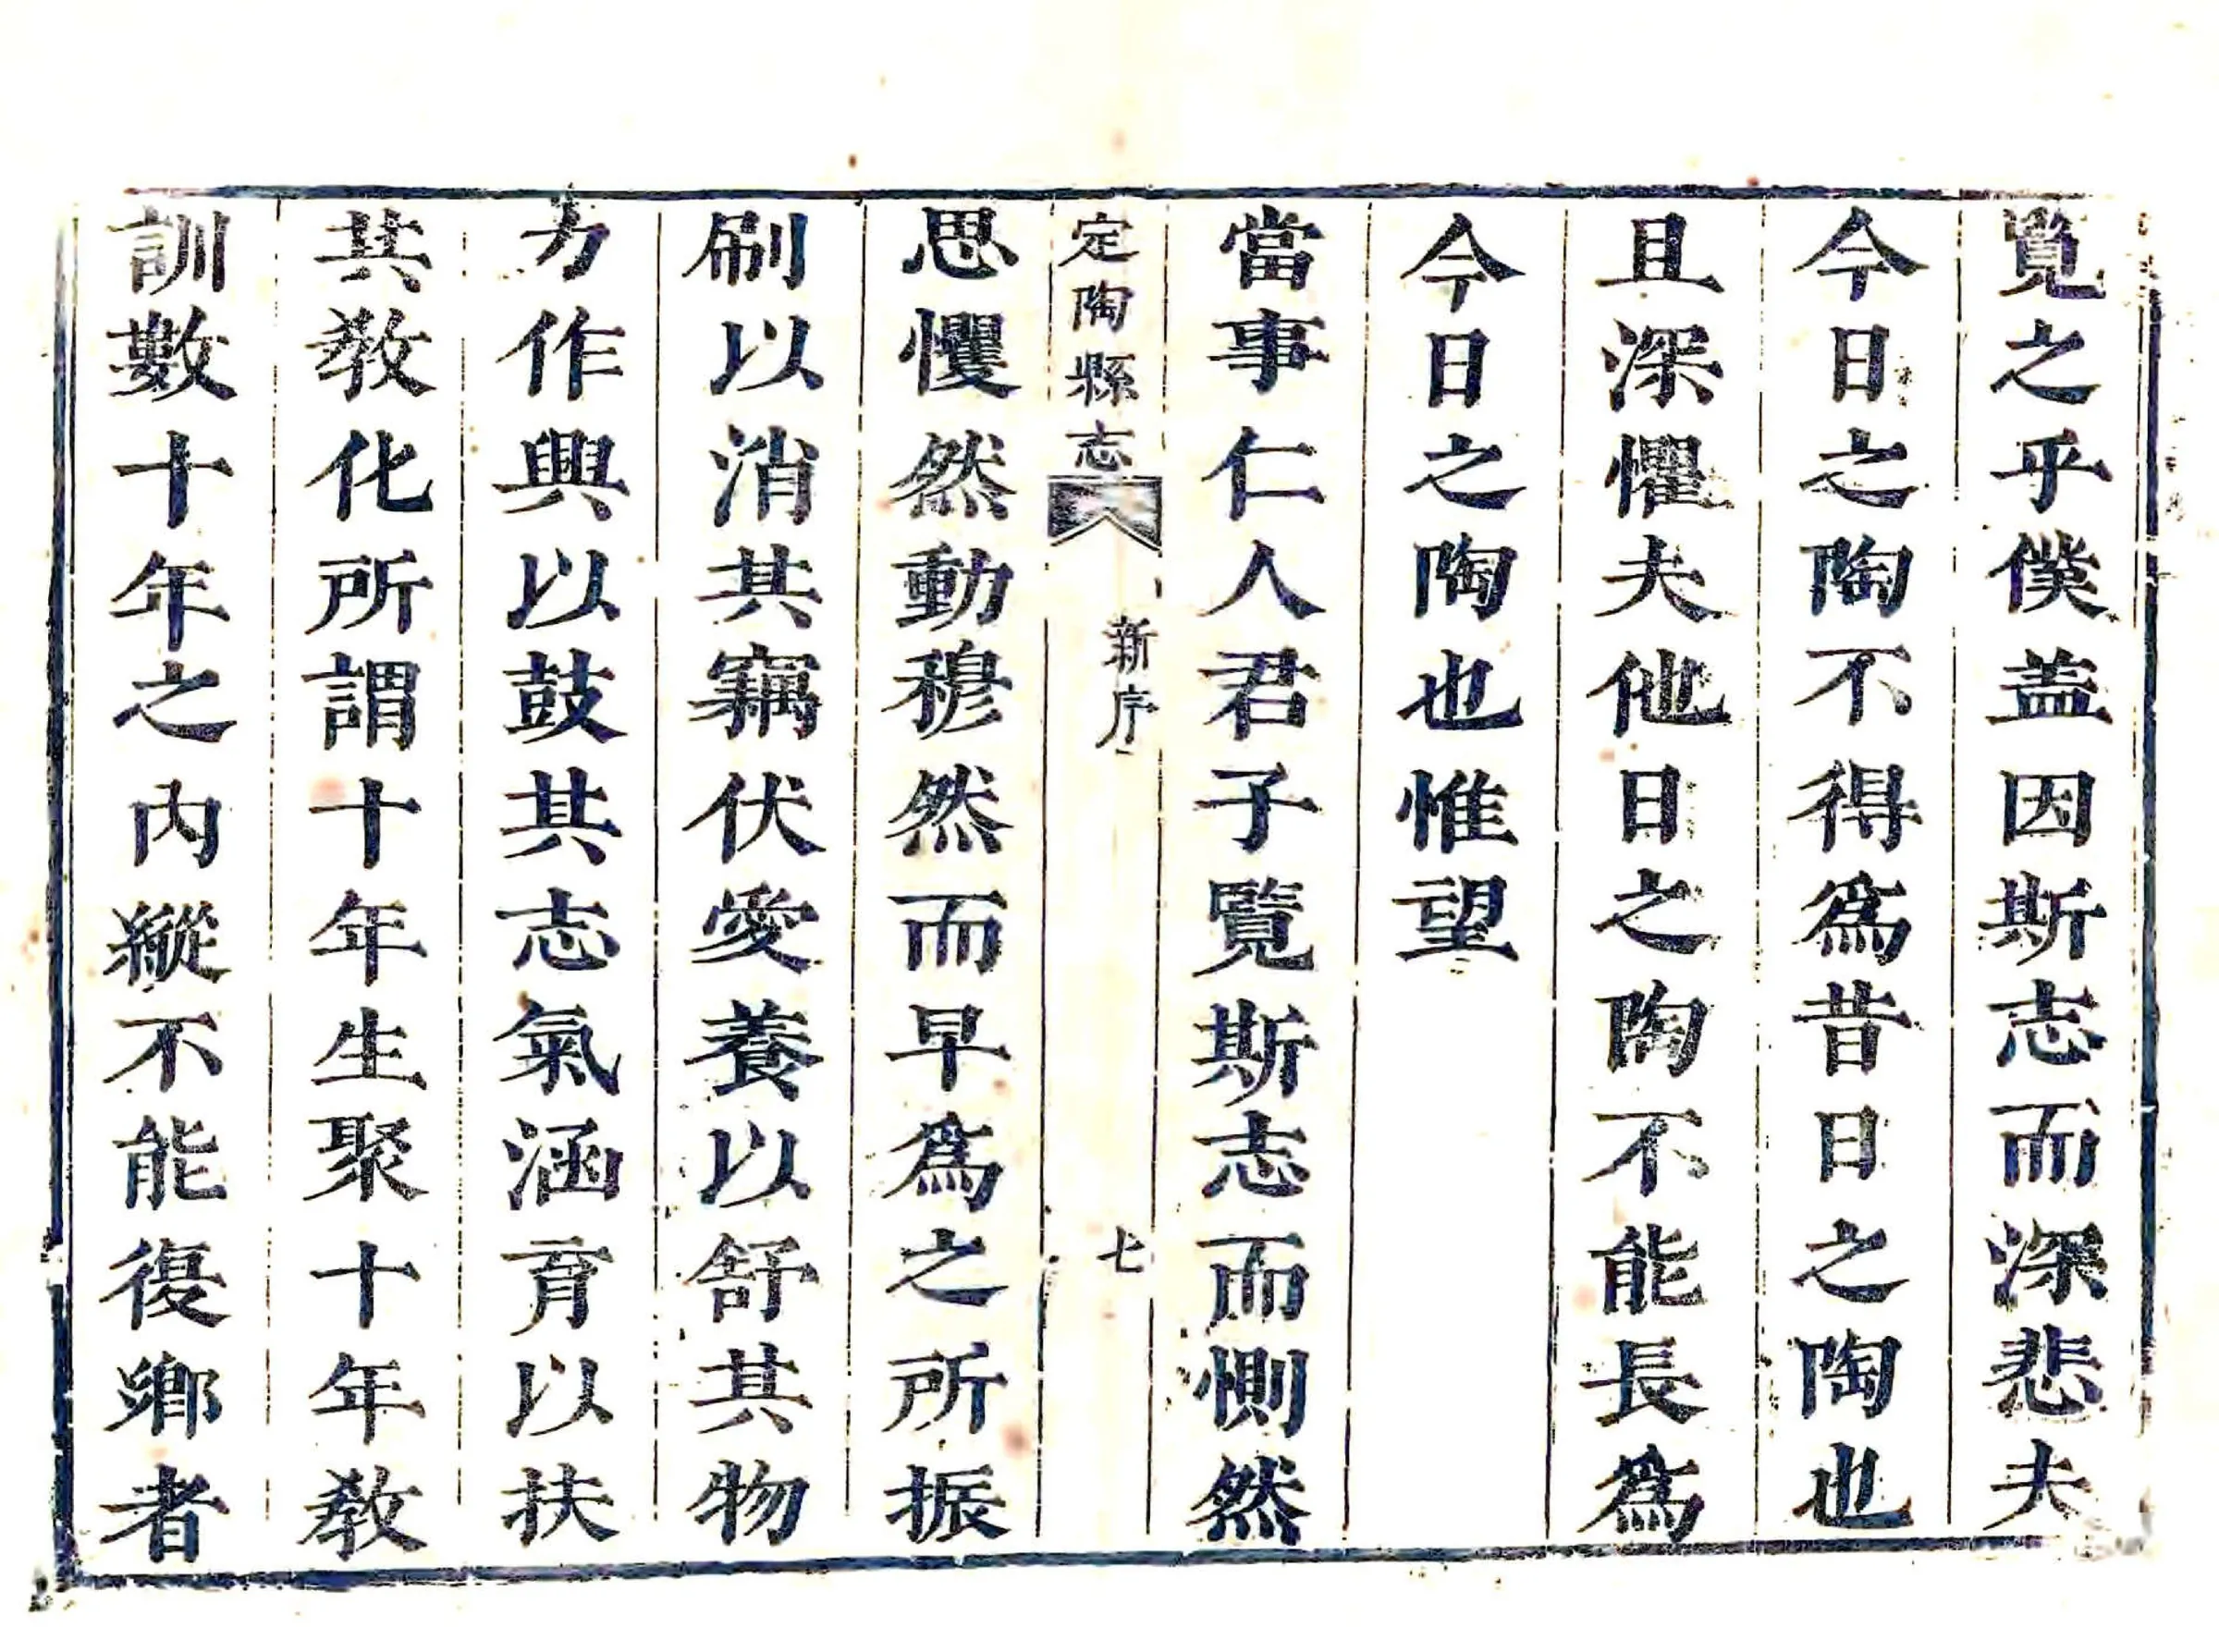 覧之乎僕盖因斯志而深悲夫
今日之陶不得爲昔日之陶也
且深懼夫他日之陶不能長爲
今日之陶也惟望
當事仁人君子覧斯志而惻然
定陶縣志
新序
七
思戄然動穆然而早爲之所振
刷以消其竊伏愛養以舒其物
力作興以鼓其志氣涵育以扶
其敎化所謂十年生聚十年敎
訓數十年之內縱不能復鄉者